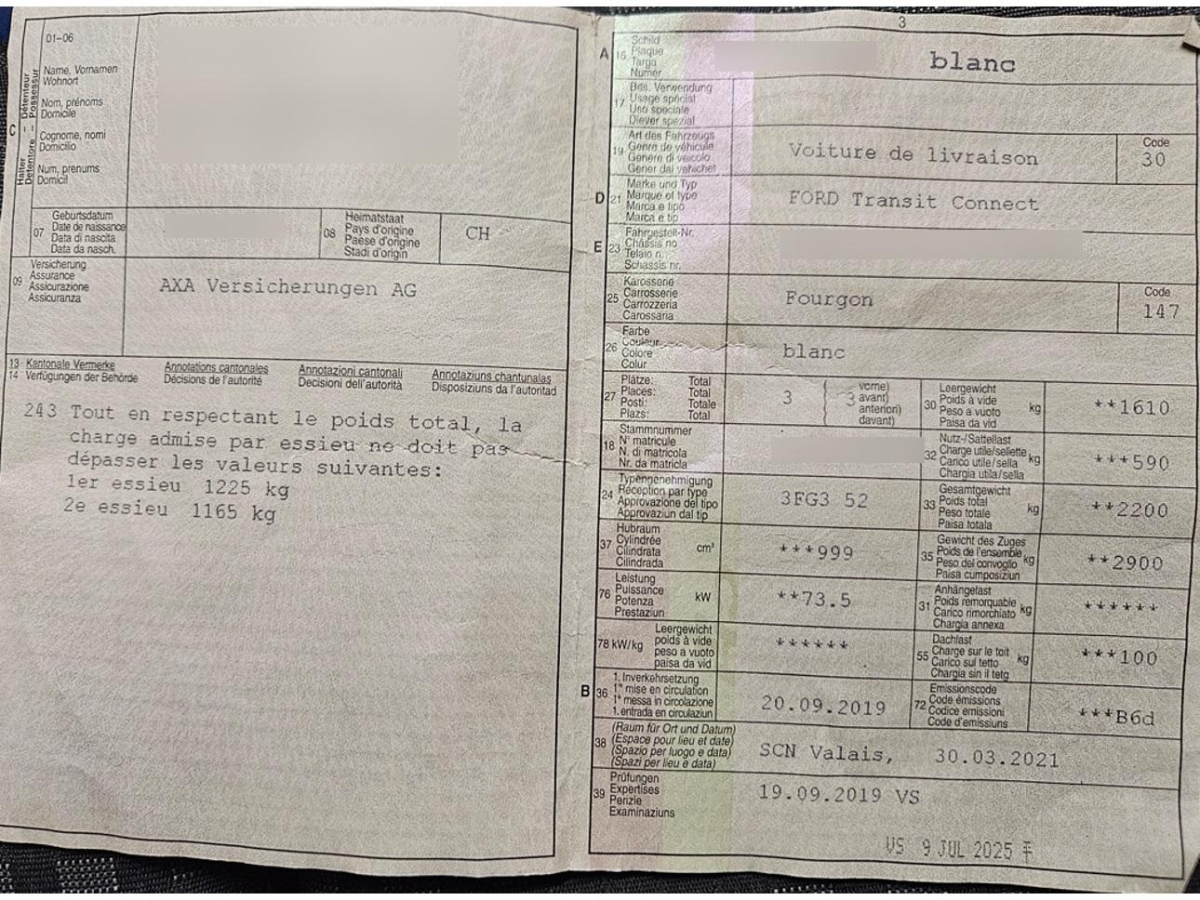 01-06
Halter
Détenteur
Detentore
Possessur
C
Name, Vornamen
Wohnort
Nom, prénoms
Domicile
Cognome, nomi
Domicilio
Num, prenums
Domicil
07
Geburtsdatum
Date de naissance
Data di nascita
Data da nasch.
08
Heimatstaat
Pays d'origine
Paese d'origine
Stadi d'origin
CH
09
Versicherung
Assurance
Assicurazione
Assicuranza
AXA Versicherungen AG
13 Kantonale Vermerke Annotations cantonales Annotazioni cantonali Annotaziuns chantunalas
14 Verfügungen der Behörde Décisions de l'autorité Decisioni dell'autorità Disposiziuns da l'autoritad
243 Tout en respectant le poids total, la
charge admise par essieu ne doit pas
dépasser les valeurs suivantes:
1er essieu 1225 kg
2e essieu 1165 kg
3
A 16
Schild
Plaque
Targa
Numer
blanc
17
Bes. Verwendung
Usage spécial
Uso speciale
Diever spezial
19
Art des Fahrzeugs
Genre de véhicule
Genere di veicolo
Gener dal vehichel
Voiture de livraison
Code
30
D 21
Marke und Typ
Marque et type
Marca e tipo
Marca e tip
FORD Transit Connect
E 23
Fahrgestell-Nr.
Châssis no
Telaio n.
Schassis nr.
25
Karosserie
Carrosserie
Carrozzeria
Carossaria
Fourgon
Code
147
26
Farbe
Couleur
Colore
Colur
blanc
27
Plätze: Total
Places: Total
Posti: Totale
Plazs: Total
3
3
vorne)
avant)
anteriori)
davant)
30
Leergewicht
Poids à vide
Peso a vuoto
Paisa da vid
kg
**1610
18
Stammnummer
N° matricule
N. di matricola
Nr. da matricla
32
Nutz-/Sattellast
Charge utile/sellette
Carico utile/sella
Chargia utila/sella
kg
***590
24
Typengenehmigung
Réception par type
Approvazione del tipo
Approvaziun dal tip
3FG3 52
33
Gesamtgewicht
Poids total
Peso totale
Paisa totala
kg
**2200
37
Hubraum
Cylindrée
Cilindrata
Cilindrada
cm³
***999
35
Gewicht des Zuges
Poids de l'ensemble
Peso del convoglio
Paisa cumposiziun
kg
**2900
76
Leistung
Puissance
Potenza
Prestaziun
kW
**73.5
31
Anhängelast
Poids remorquable
Carico rimorchiato
Chargia annexa
kg
******
78 kW/kg
Leergewicht
poids à vide
peso a vuoto
paisa da vid
******
55
Dachlast
Charge sur le toit
Carico sul tetto
Chargia sin il tetg
kg
***100
B 36
1. Inverkehrsetzung
1re mise en circulation
1a messa in circolazione
1. entrada en circulaziun
20.09.2019
72
Emissionscode
Code émissions
Codice emissioni
Code d'emissiuns
***B6d
38
(Raum für Ort und Datum)
(Espace pour lieu et date)
(Spazio per luogo e data)
(Spazi per lieu e data)
SCN Valais, 30.03.2021
39
Prüfungen
Expertises
Perizie
Examinaziuns
19.09.2019 VS
VS 9 JUL 2025